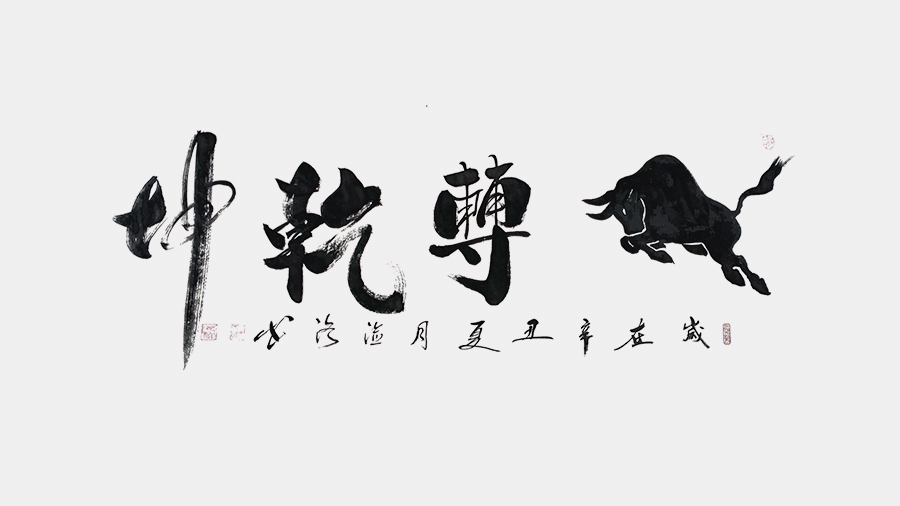 轉乾坤
歲在辛丑夏月書